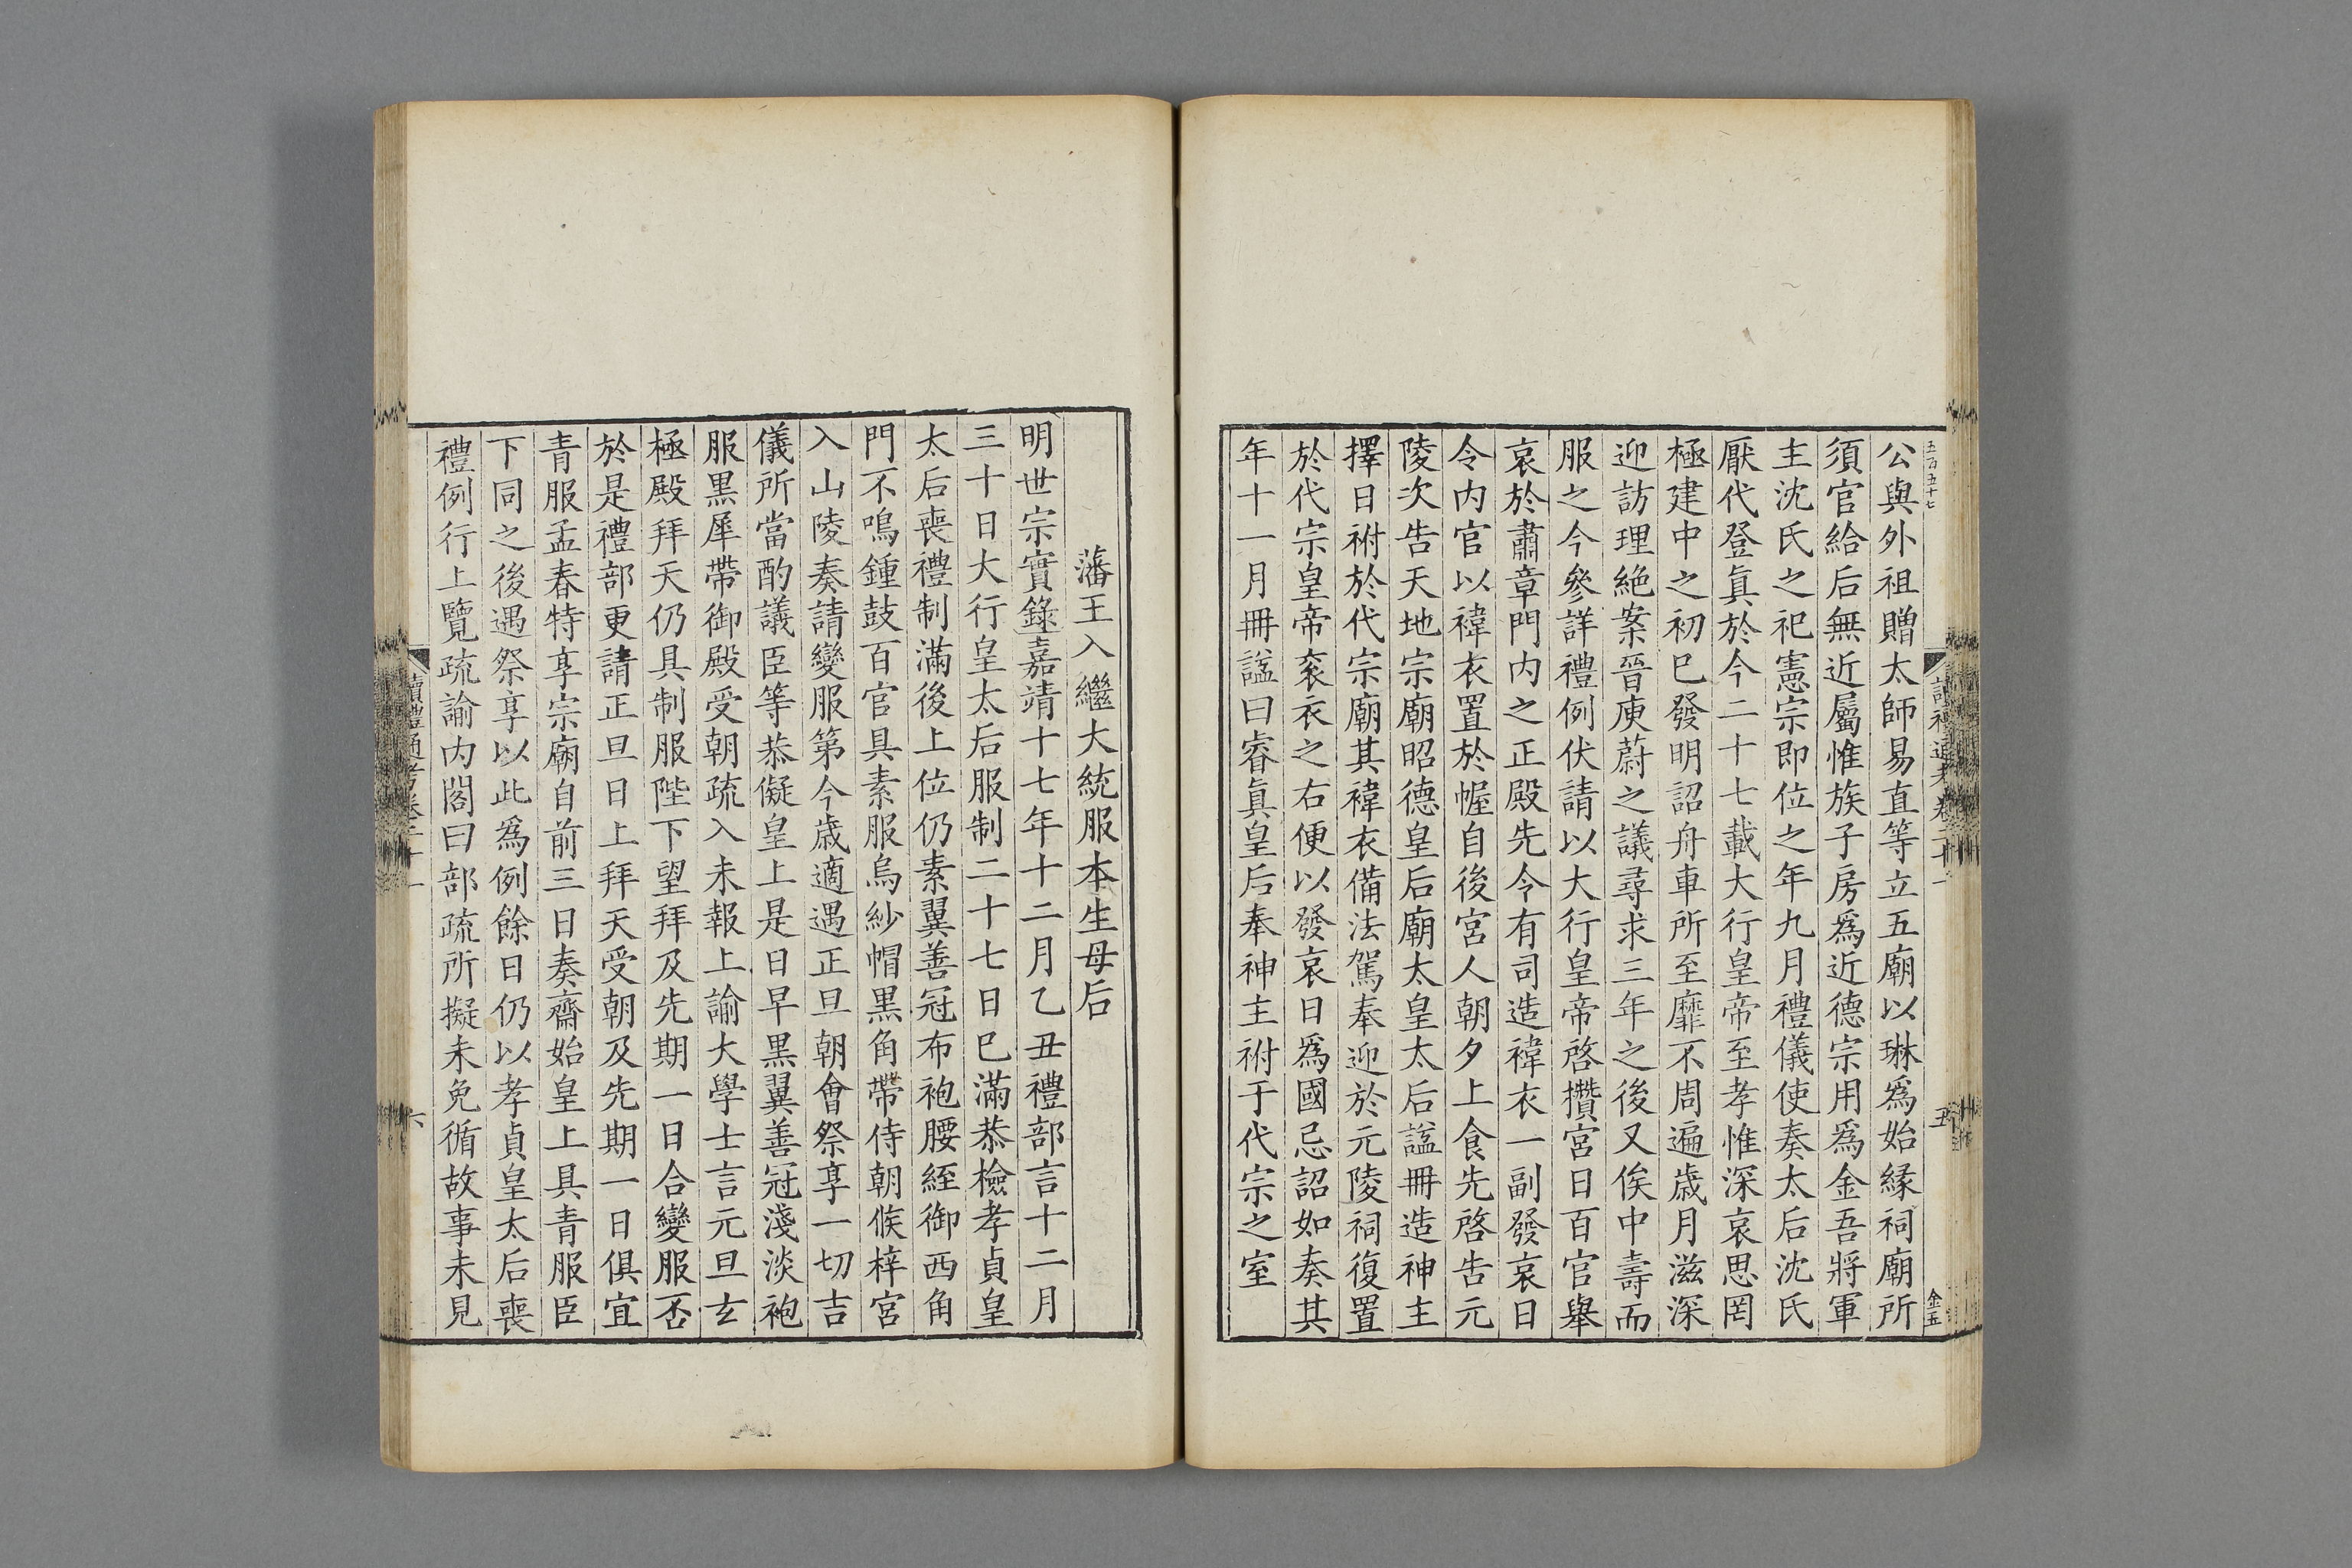 五百五十七
公與外祖贈太師易直等立五廟以琳爲始緣祠廟所
須官給后無近屬惟族子房爲近德宗用爲金吾將軍
主沈氏之祀憲宗即位之年九月禮儀使奏太后沈氏
厭代登眞於今二十七載大行皇帝至孝惟深哀思罔
極建中之初巳發明詔舟車所至靡不周遍歲月滋深
迎訪理絶案晉庾蔚之議尋求三年之後又俟中壽而
服之今參詳禮例伏請以大行皇帝啓攢宮日百官舉
哀於肅章門内之正殿先令有司造褘衣一副發哀日
令内官以褘衣置於幄自後宮人朝夕上食先啓告元
陵次告天地宗廟昭德皇后廟太皇太后諡冊造神主
擇日祔於代宗廟其褘衣備法駕奉迎於元陵祠復置
於代宗皇帝衮衣之右便以發哀日爲國忌詔如奏其
年十一月冊諡曰睿眞皇后奉神主祔于代宗之室
讀禮通考卷二十一
五
金五
藩王入繼大統服本生母后
明世宗實錄嘉靖十七年十二月乙丑禮部言十二月
三十日大行皇太后服制二十七日巳滿恭檢孝貞皇
太后喪禮制滿後上位仍素翼善冠布袍腰絰御西角
門不鳴鍾鼓百官具素服烏紗帽黑角帶侍朝俟梓宮
入山陵奏請變服第今歲適遇正旦朝會祭享一切吉
儀所當酌議臣等恭儗皇上是日早黑翼善冠淺淡袍
服黑犀帶御殿受朝疏入未報上諭大學士言元旦玄
極殿拜天仍具制服陛下望拜及先期一日合變服否
於是禮部更請正旦日上拜天受朝及先期一日俱宜
青服孟春特享宗廟自前三日奏齋始皇上具青服臣
下同之後遇祭享以此爲例餘日仍以孝貞皇太后喪
禮例行上覽疏諭内閣曰部疏所擬未免循故事未見
讀禮通考卷二十一
六